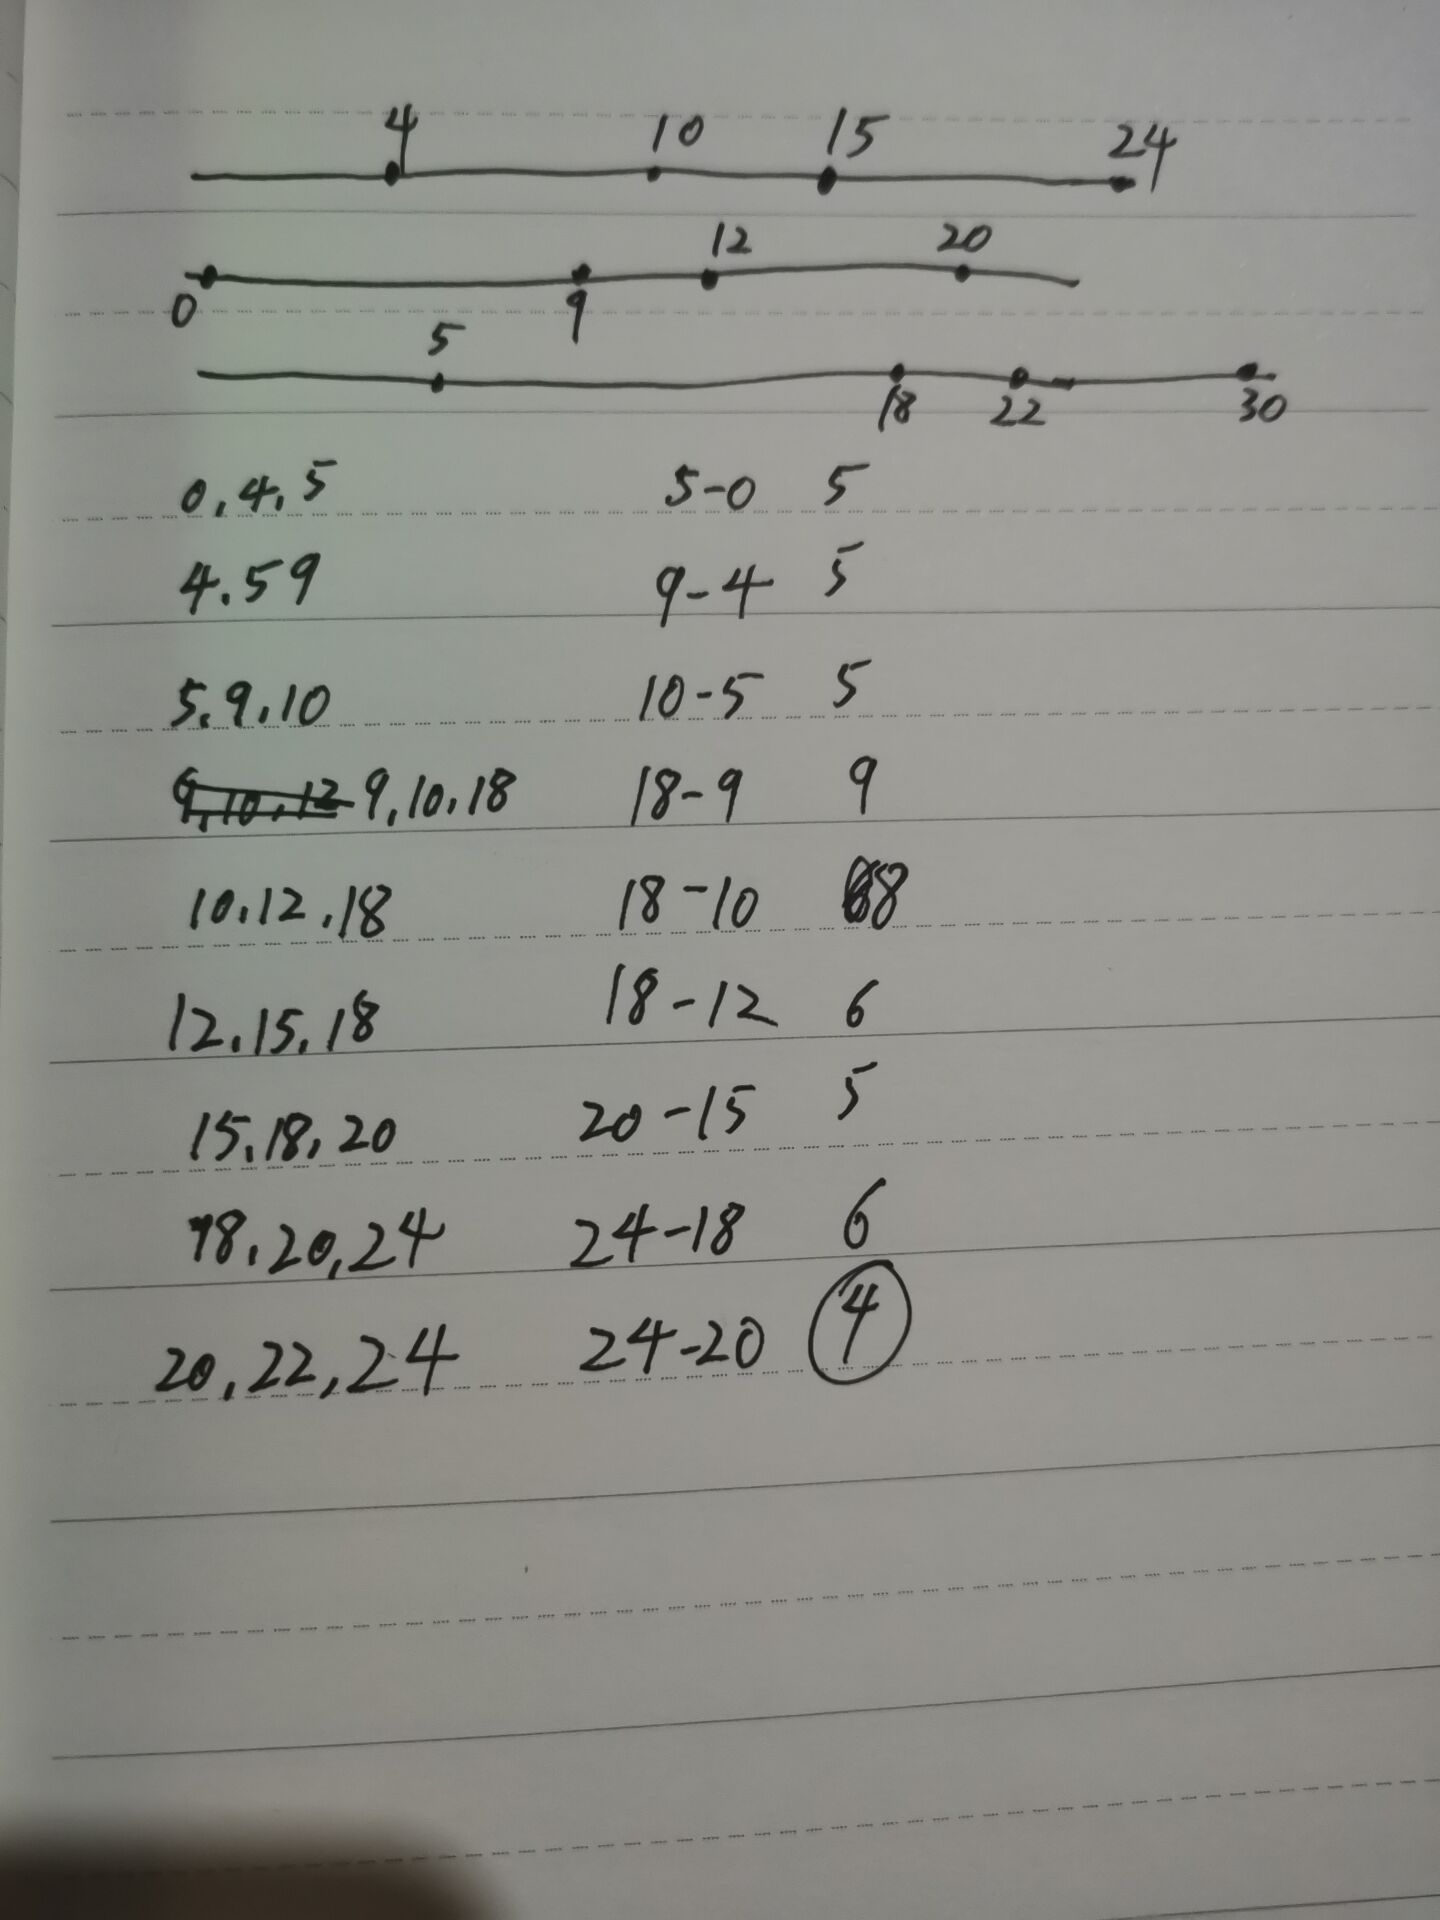 4 10 15 24
12 20
0 9
5
18 22 30
0,4,5 5-0 5
4.59 9-4 5
5,9,10 10-5 5
9,10,12 9,10,18 18-9 9
10,12,18 18-10 8
12,15,18 18-12 6
15,18,20 20-15 5
18,20,24 24-18 6
20,22,24 24-20 4